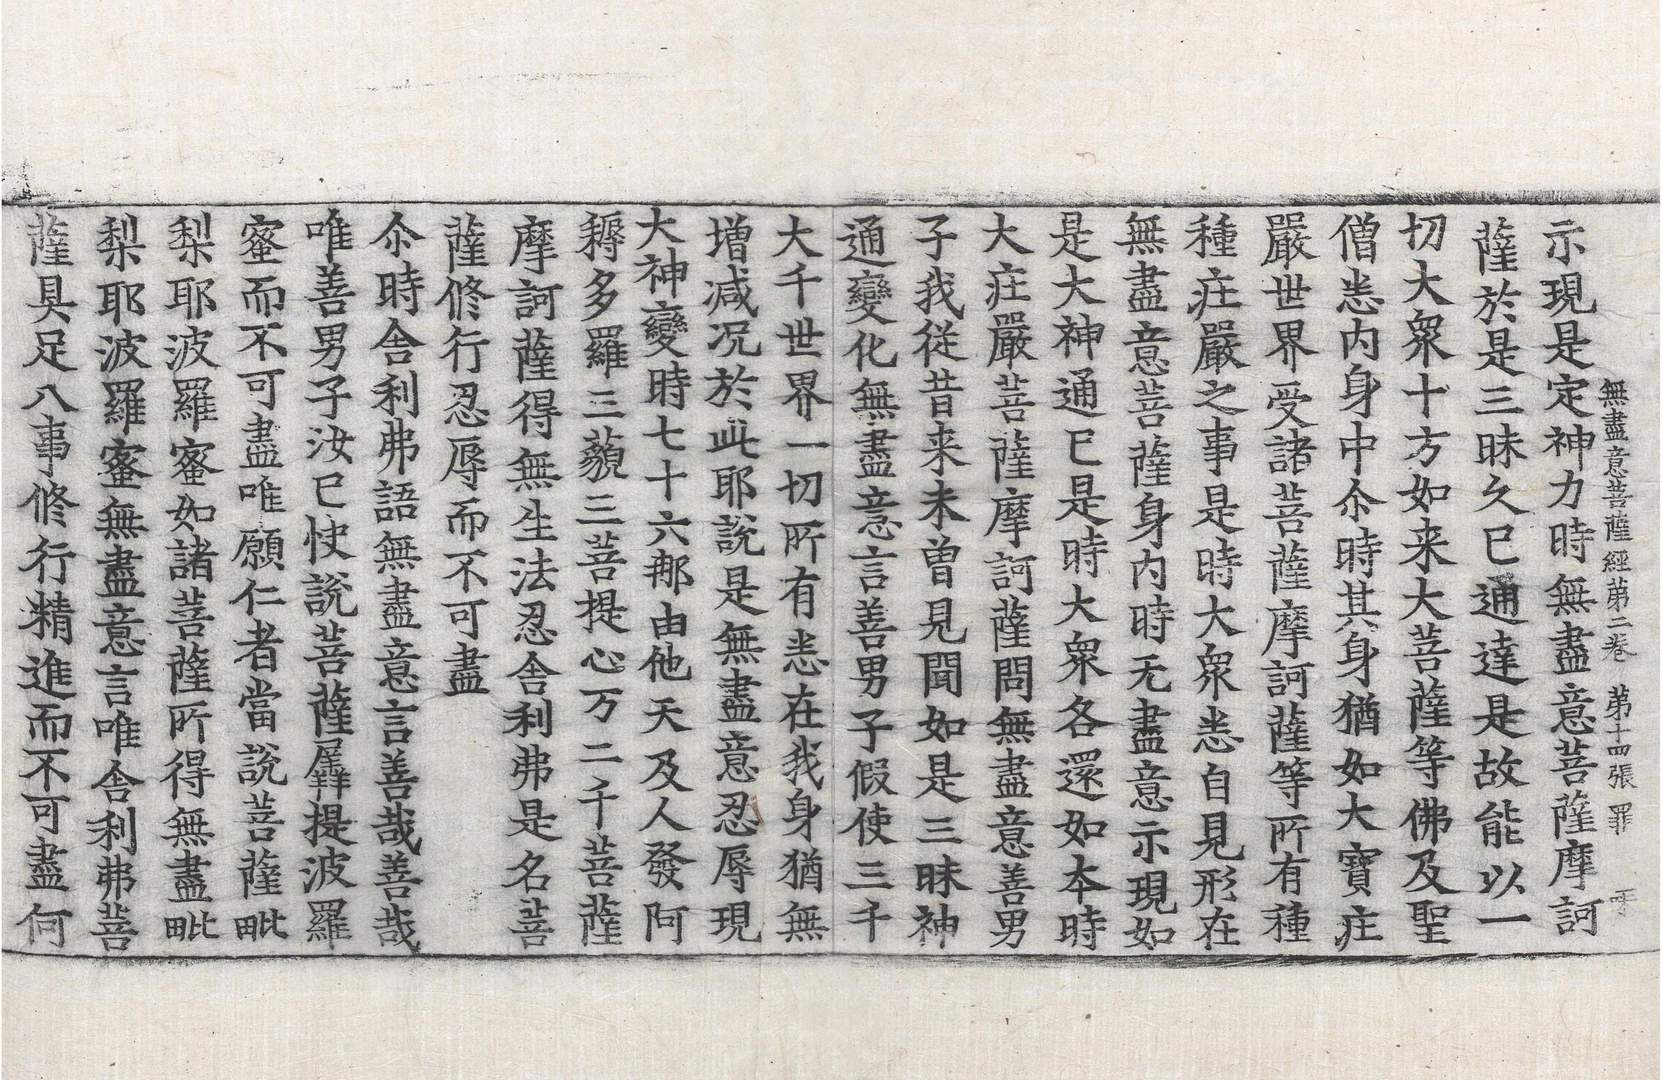 無盡意菩薩經苐二卷 苐十四張 罪
示現是定神力時無盡意菩薩摩訶
薩於是三昧久已通達是故能以一
切大衆十方如来大菩薩等佛及聖
僧悉内身中尒時其身猶如大寶庄
嚴世界受諸菩薩摩訶薩等所有種
種庄嚴之事是時大衆悉自見形在
無盡意菩薩身内時无盡意示現如
是大神通已是時大衆各還如夲時
大庄嚴菩薩摩訶薩問無盡意善男
子我従昔来未曽見聞如是三昧神
通變化無盡意言善男子假使三千
大千世界一切所有悉在我身猶無
増減况於此耶說是無盡意忍辱現
大神變時七十六那由他天及人發阿
耨多羅三藐三菩提心万二千菩薩
摩訶薩得無生法忍舎利弗是名菩
薩修行忍辱而不可盡
尒時舎利弗語無盡意言善哉善哉
唯善男子汝已快說菩薩羼提波羅
蜜而不可盡唯願仁者當說菩薩毗
梨耶波羅蜜如諸菩薩所得無盡毗
梨耶波羅蜜無盡意言唯舎利弗菩
薩具足八事修行精進而不可盡何